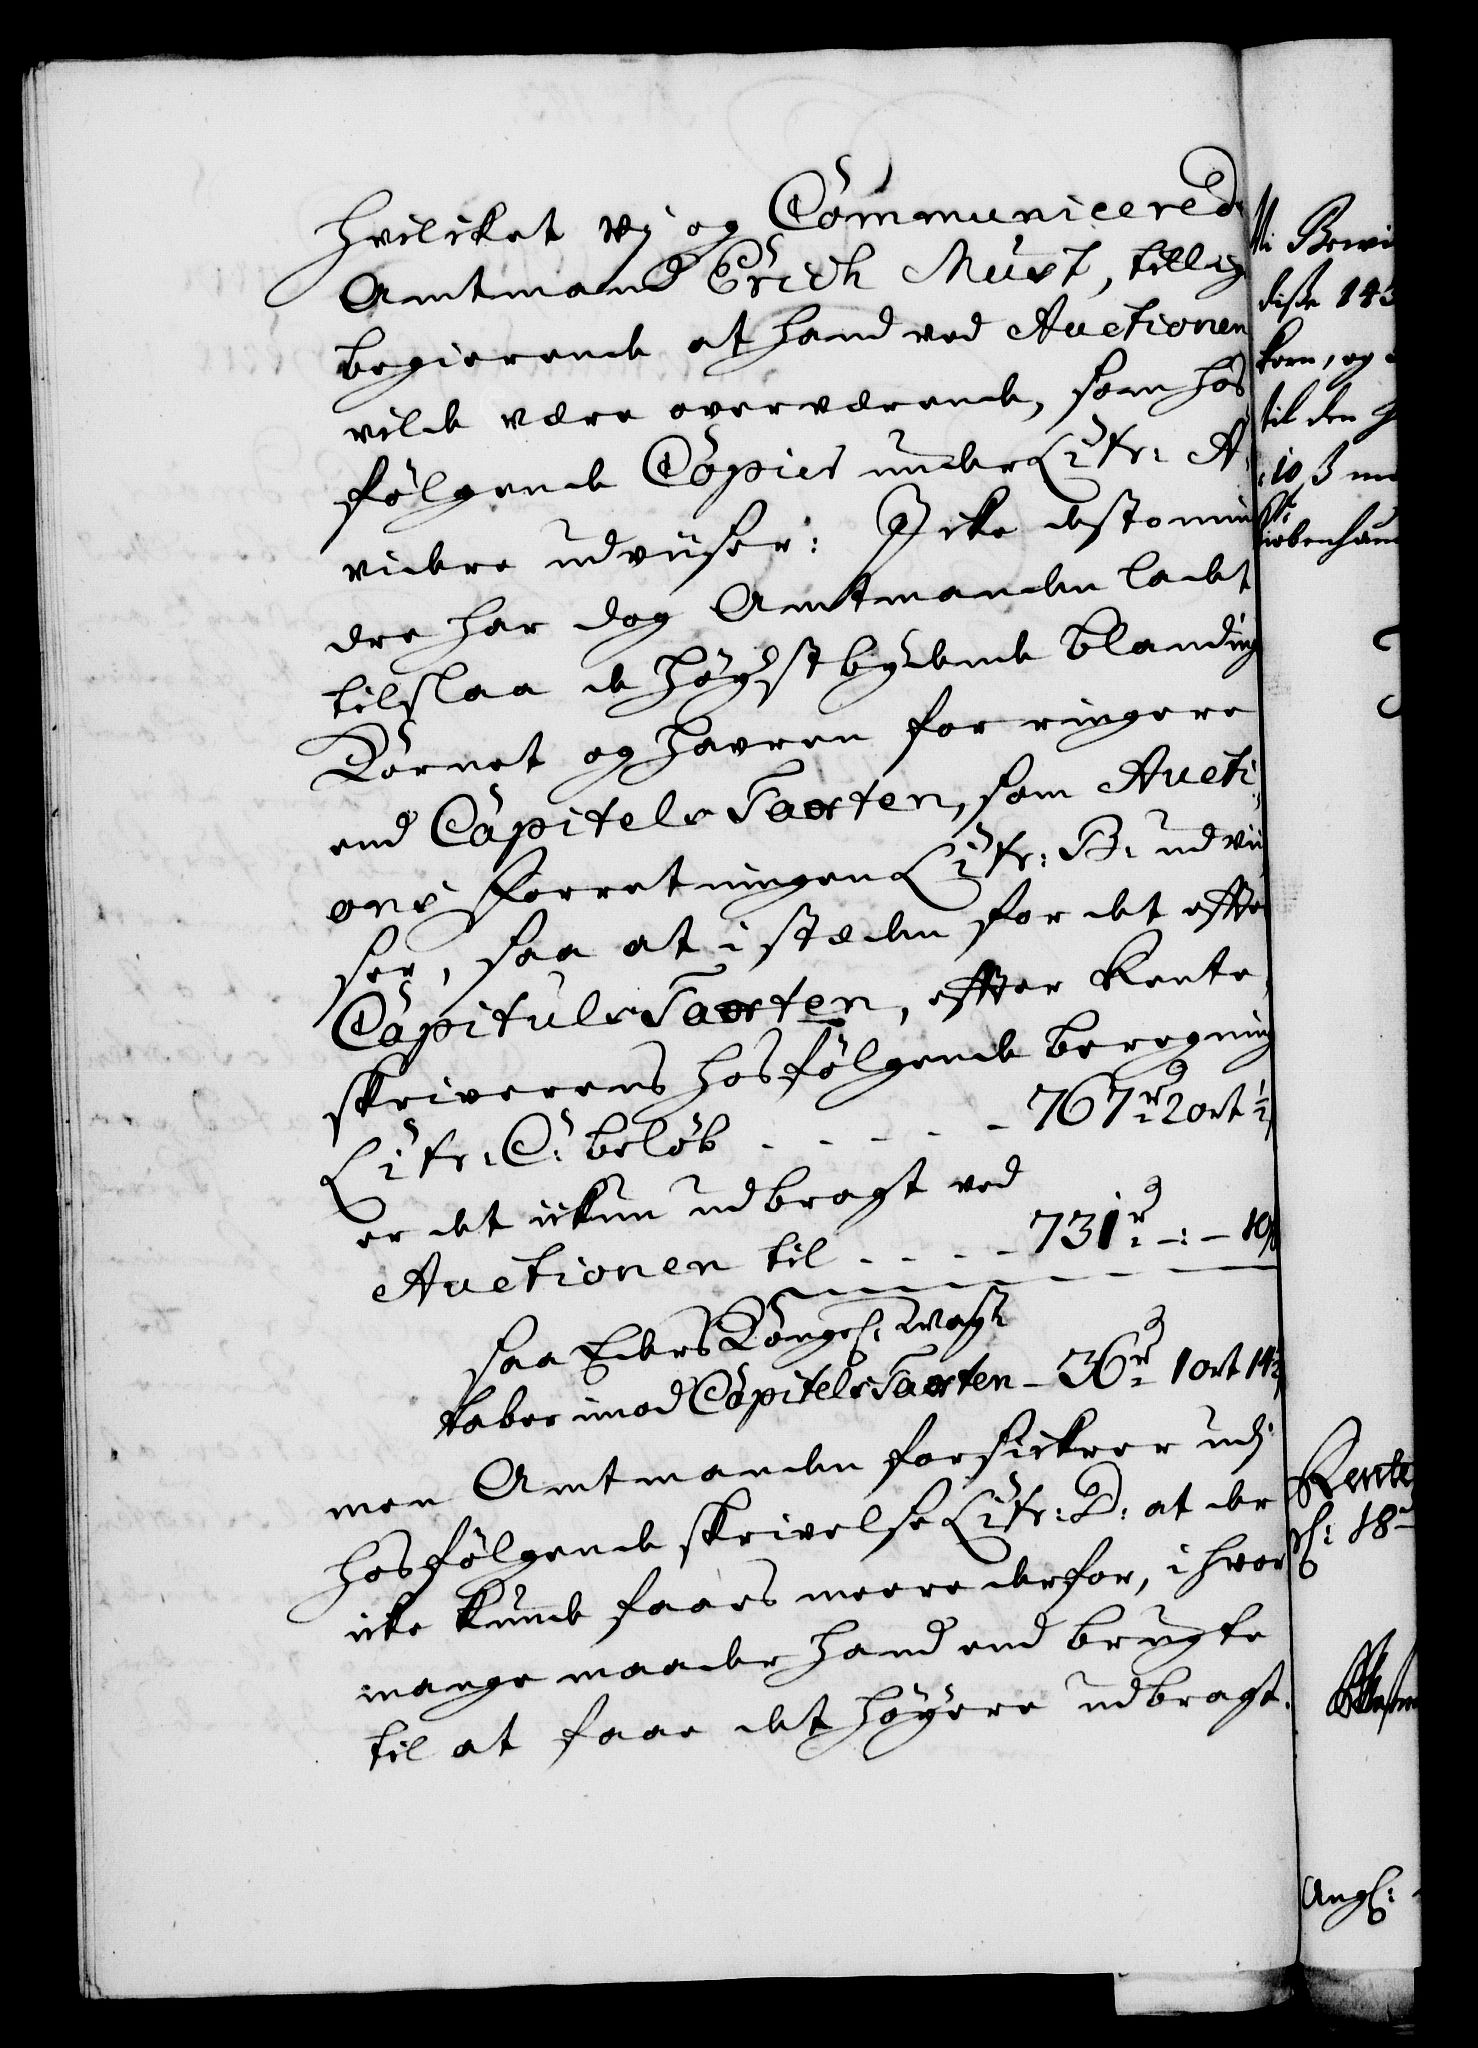 hvilcket Vj og Communicerede
Amtmand Erich Must, tillig
begierende at hand ved Auctionen
vilde være overværende, som hos
følgende Copier under Litr: A.
videre udviiser: Icke destomin
dre har dog Amtmanden ladet
tilslaa de høystbydende bland
Kornet og Havren for ringere
end Capitels Taxten, som Aucti
ons forretningen Litr: B. udvii
ser, saa at i stæden for det efter
Capituls Taxten, effter Rente
skriverens hosfølgende beregning
Litr: C: beløb - - - - - 767 rd 2 ort ½
er det ickun udbragt ved
Auctionen til - - - - 731 rd - : - 10
saa Eders Kongel: Mayt
taber imod Capitels Taxten - 36 rd 1 ort 14½
men Amtmanden forsickrer udj
hosfølgende skrivelse Litr: D: at der
icke kunde faaes meere derfor, i hvor
mange maader hand end brugte
til at faae det høyere udbragt.
disse 143
korn, og
til den
10 ß
Rente
Angl: